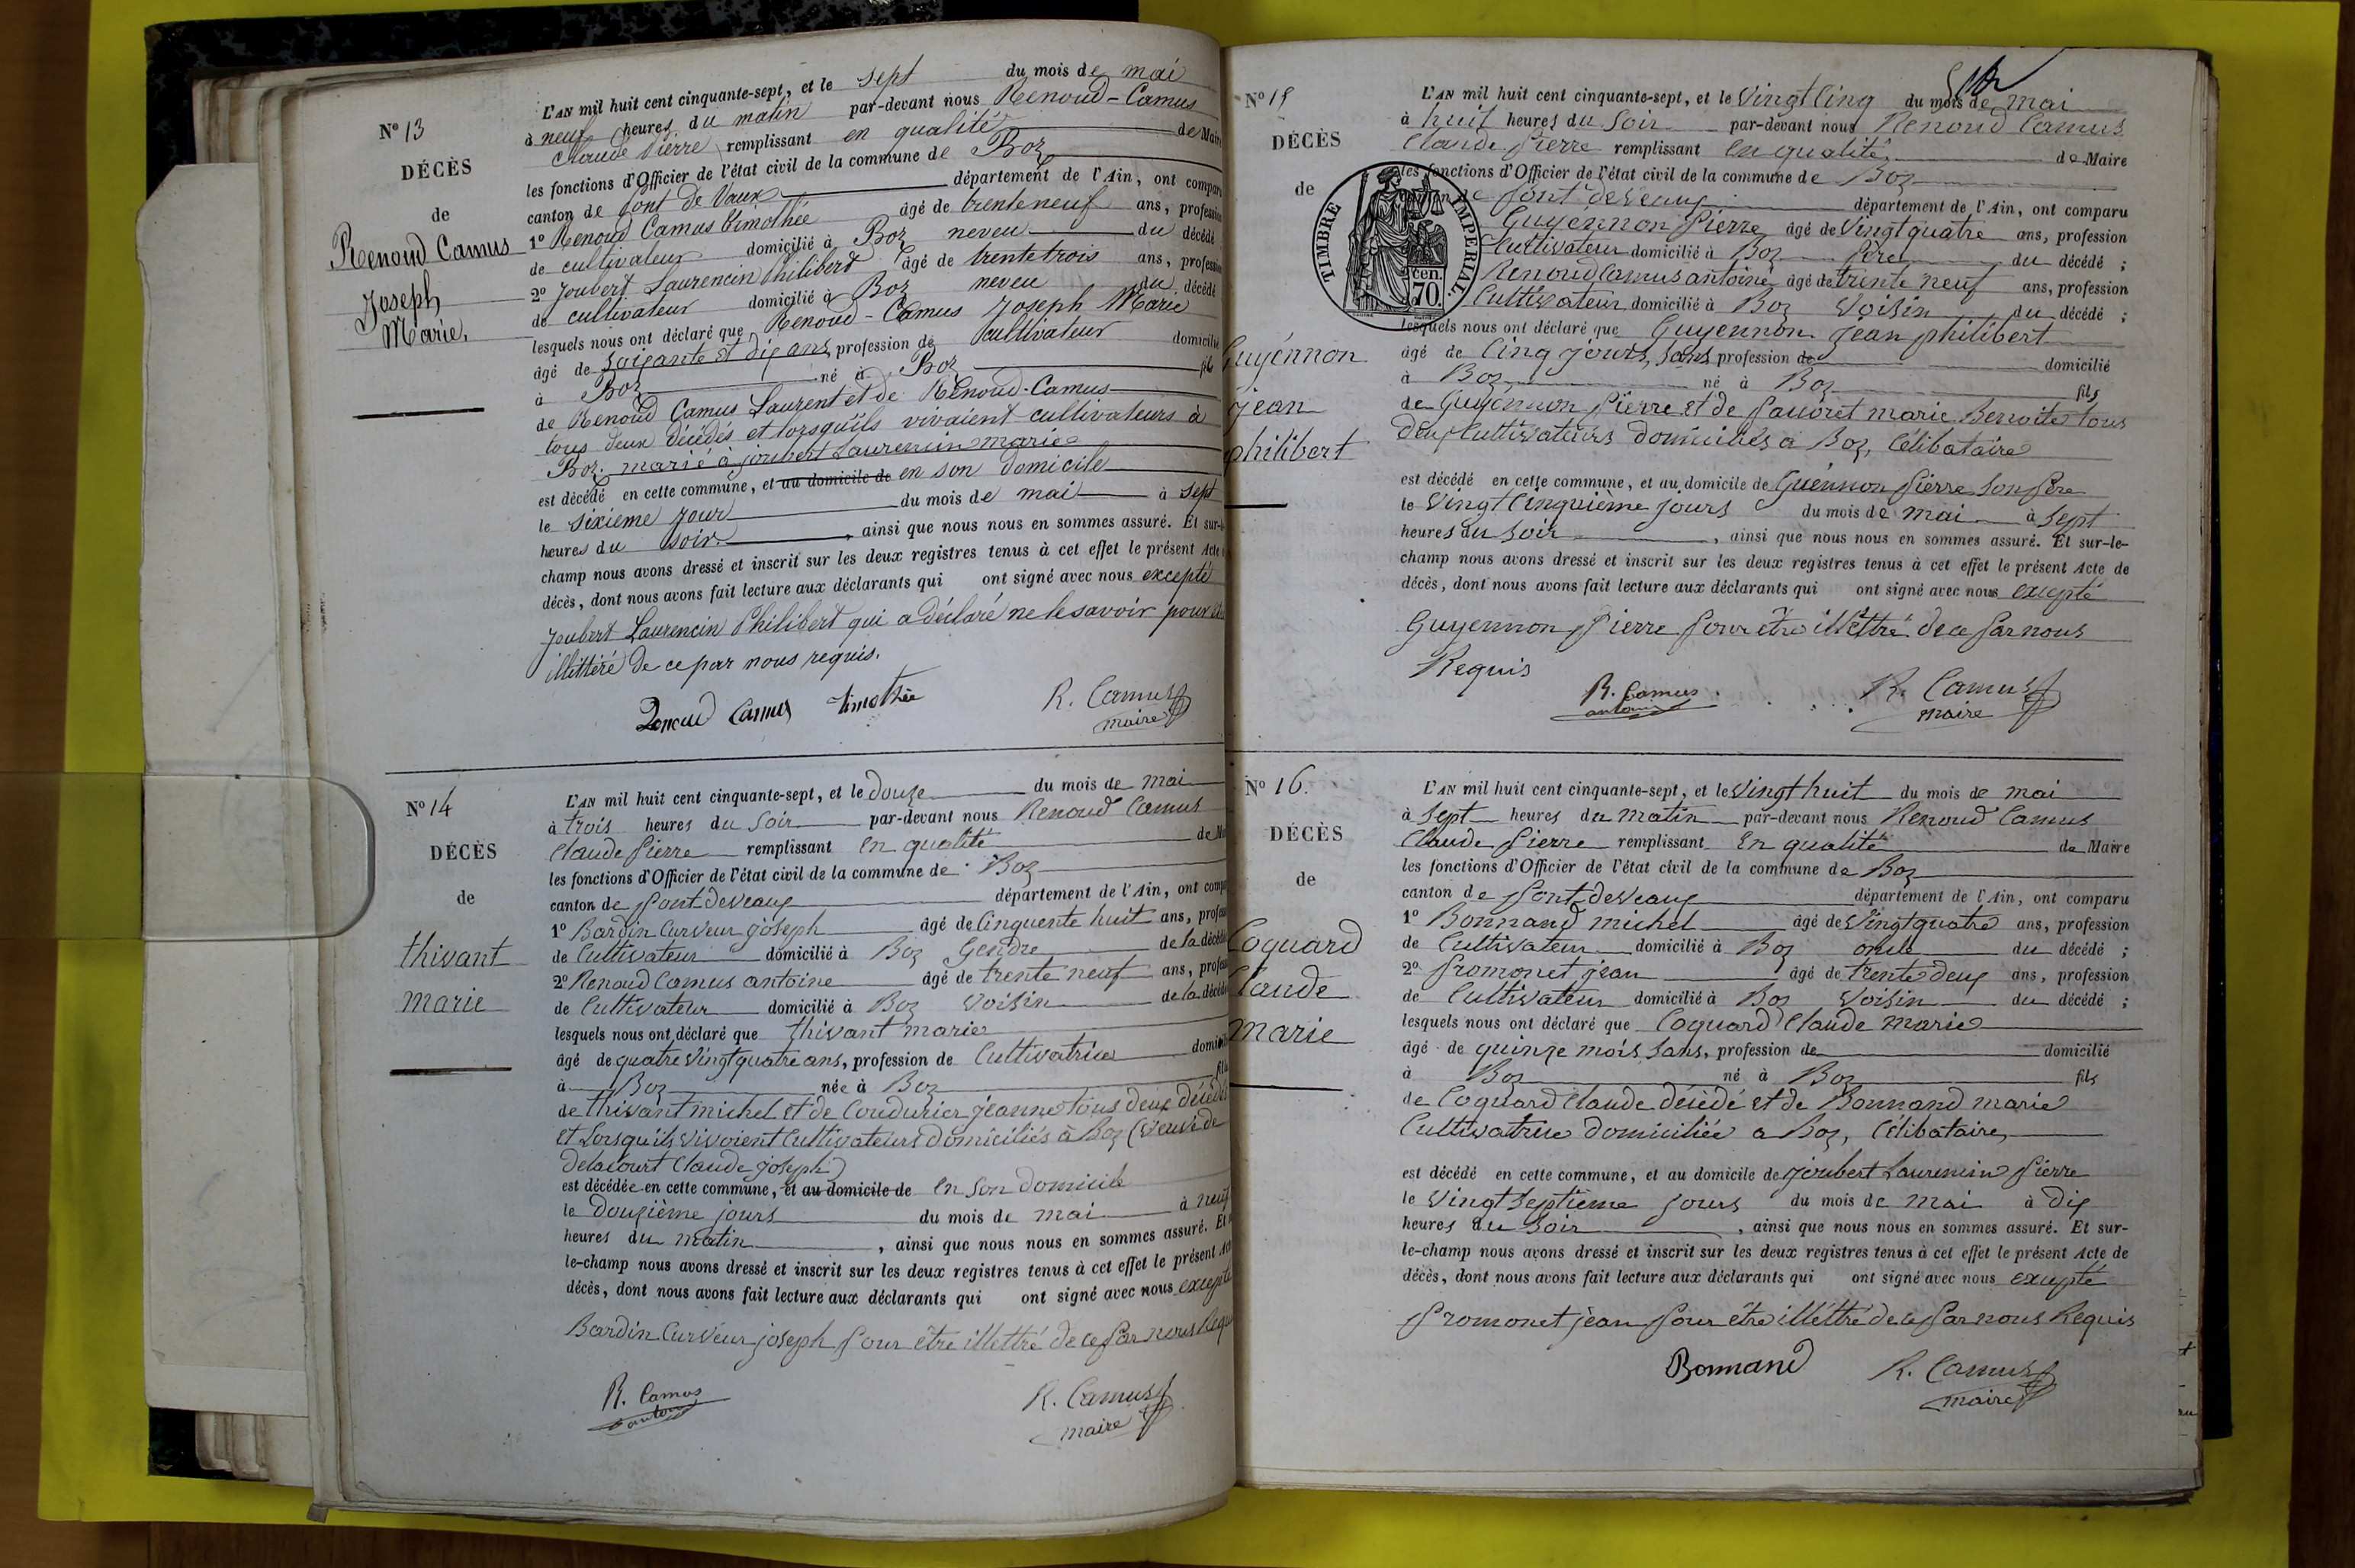 N° 13
DÉCÈS
de
Renoud Camus
Joseph
Marie.
L'AN mil huit cent cinquante-sept, et le sept du mois de mai
à neuf heures du matin par-devant nous Renoud-Camus
Claude Pierre remplissant en qualité de Maire
les fonctions d'Officier de l'état civil de la commune de Boz
canton de Pont de Vaux département de l'Ain, ont comparu
1° Renoud Camus timothée âgé de trente neuf ans, profession
de cultivateur domicilié à Boz neveu du décédé
2° Joubert Laurencin Philibert âgé de trente trois ans, profession
de cultivateur domicilié à Boz neveu du décédé
lesquels nous ont déclaré que Renoud-Camus Joseph Marie
âgé de soixante et dix ans, profession de cultivateur domicilié
à Boz né à Boz fils
de Renoud Camus Laurent et de Renoud-Camus
tous deux décédés et lorsqu'ils vivaient cultivateurs à
Boz; marié à joubert Laurencin marie
est décédé en cette commune, et au domicile de en son domicile
le sixieme jour du mois de mai à sept
heures du soir. , ainsi que nous nous en sommes assuré. Et sur-le-
champ nous avons dressé et inscrit sur les deux registres tenus à cet effet le présent Acte
décès, dont nous avons fait lecture aux déclarants qui ont signé avec nous excepté
Joubert Laurencin Philibert qui a déclaré ne le savoir pour
illittéré de ce par nous requis.
Renoud Camus timothée R. Camus
maire
N° 14
DÉCÈS
de
thivant
marie
L'AN mil huit cent cinquante-sept, et le douze du mois de mai
à trois heures du soir par-devant nous Renoud Camus
Claude Pierre remplissant en qualité de
les fonctions d'Officier de l'état civil de la commune de Boz
canton de Pont-deveaux département de l'Ain, ont
1° Bardin Curveur joseph âgé de Cinquente huit ans,
de Cultivateur domicilié à Boz Gendre de la décédé
2° Renoud Camus antoine âgé de trente neuf ans,
de Cultivateur domicilié à Boz Voisin de la décédé
lesquels nous ont déclaré que thivant marie
âgé de quatre vingt quatre ans, profession de Cultivatrice
à Boz née à Boz
de thivant michel et de Coudurier jeanne tous deux décédés
et Lorsqu'ils vivoient Cultivateurs domiciliés à Boz (veuve de
Delacourt Claude joseph)
est décédée en cette commune, et au domicile de en Son Domicile
le Douzième jours du mois de mai à neuf
heures du matin , ainsi que nous nous en sommes assuré. Et
le-champ nous avons dressé et inscrit sur les deux registres tenus à cet effet le présent
décès, dont nous avons fait lecture aux déclarants qui ont signé avec nous excepté
Bardin Curveur joseph Pour être illettré de ce Par nous Requis
R. Camus R. Camus
antoine maire
N° 15
DÉCÈS
de
Guyennon
jean
philibert
TIMBRE IMPERIAL
70 cen.
L'AN mil huit cent cinquante-sept, et le Vingt Cinq du mois de mai
à huit heures du Soir par-devant nous Renoud Camus
Claude Pierre remplissant en qualité de Maire
les fonctions d'Officier de l'état civil de la commune de Boz
de Pont deveaux département de l'Ain, ont comparu
Guyennon Pierre âgé de Vingt quatre ans, profession
Cultivateur domicilié à Boz Père du décédé ;
Renoud Camus antoine âgé de trente neuf ans, profession
Cultivateur domicilié à Boz Voisin du décédé ;
lesquels nous ont déclaré que Guyennon jean philibert
âgé de Cinq jours, sans profession de domicilié
à Boz né à Boz fils
de Guyennon Pierre et de marie Benoite tous
deux Cultivateurs domiciliés à Boz, Célibataire
est décédé en cette commune, et au domicile de Guennon Pierre Son Père
le Vingt Cinquième jours du mois de mai à Sept
heures du Soir , ainsi que nous nous en sommes assuré. Et sur-le-
champ nous avons dressé et inscrit sur les deux registres tenus à cet effet le présent Acte de
décès, dont nous avons fait lecture aux déclarants qui ont signé avec nous excepté
Guyennon Pierre Pour être illettré de ce Par nous
Requis
R. Camus R. Camus
antoine maire
N° 16.
DÉCÈS
de
Coquard
Claude
marie
L'AN mil huit cent cinquante-sept, et le Vingt huit du mois de mai
à Sept heures du Matin par-devant nous Renoud Camus
Claude Pierre remplissant En qualité de Maire
les fonctions d'Officier de l'état civil de la commune de Boz
canton de Pont-deveaux département de l'Ain, ont comparu
1° Bonnand michel âgé de Vingt quatre ans, profession
de Cultivateur domicilié à Boz oncle du décédé ;
2° Promonet jean âgé de trente deux ans, profession
de Cultivateur domicilié à Boz Voisin du décédé ;
lesquels nous ont déclaré que Coquard Claude marie
âgé de quinze mois Sans, profession de domicilié
à Boz né à Boz fils
de Coquard Claude décédé et de Bonnand marie
Cultivatrice domiciliée a Boz, Célibataire,
est décédé en cette commune, et au domicile de joubert Laurencin Pierre
le Vingt Septième jours du mois de mai à Dix
heures du Soir , ainsi que nous nous en sommes assuré. Et sur-
le-champ nous avons dressé et inscrit sur les deux registres tenus à cet effet le présent Acte de
décès, dont nous avons fait lecture aux déclarants qui ont signé avec nous excepté
Promonet jean Pour être illéttré de ce Par nous Requis
Bonnand R. Camus
maire